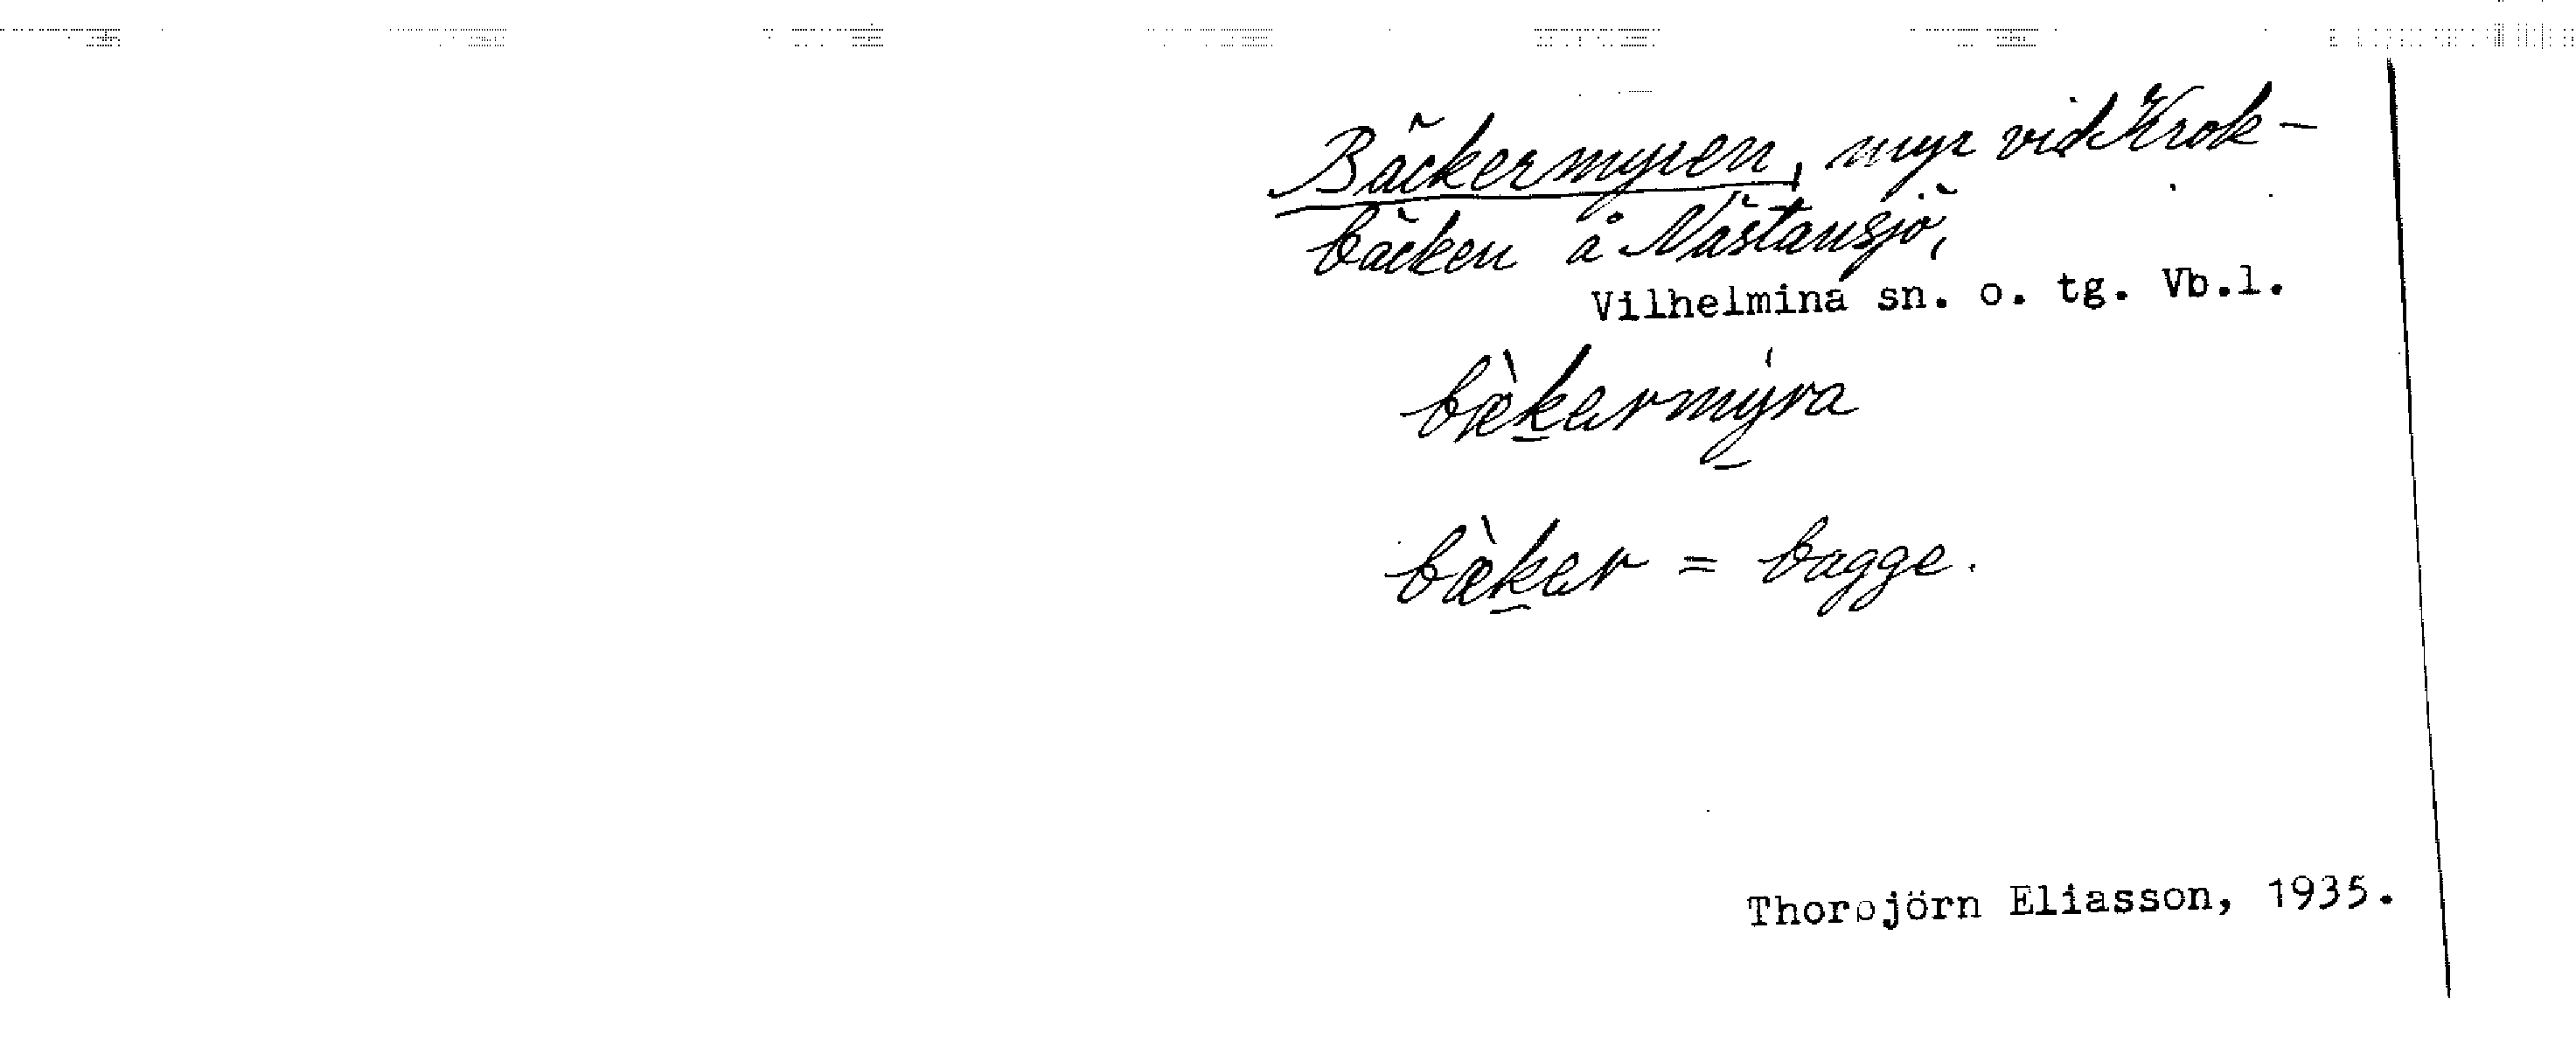 Bäckermyren, myr vid Krok-
bäcken å Nästansjö,
Vilhelmina sn. o. tg. Vb.l.
bæ̀kermýra
bæ̀ker = bagge.
Thorbjörn Eliasson, 1935.